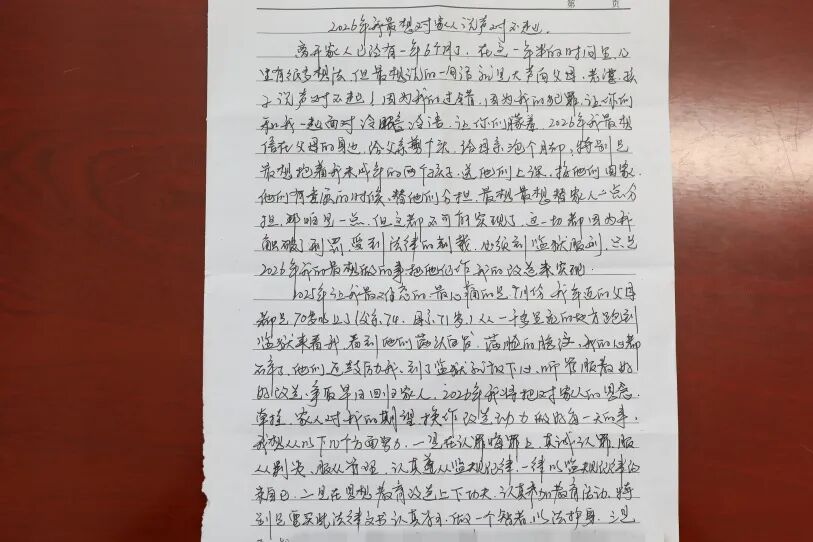 第 页
2026年我最想对家人说声对不起
离开家人已经有一年6个月了，在这一年半的时间里，心
里有很多想法，但最想说的一句话就是大声向父母、老婆、孩
子说声对不起！因为我的过错，因为我的犯罪，让你们
和我一起面对冷眼冷语，让你们蒙羞。2026年我最想
陪在父母的身边，给父亲剪个头，给母亲泡个脚，特别是
最想抱着我未成年的两个孩子，送他们上课，接他们回家，
他们有意愿的时候，替他们分担，最想最想替家人一点分
担，哪怕是一点，但这都不可能实现了，这一切都因为我
触碰了刑罚，受到法律的制裁，必须到监狱服刑，只是
2026年我的最想做的事把他们作我的改造来实现。
2025年让我最难忘的最心痛的是 月份，我年迈的父母
都是70多岁以上了（父亲74，母亲71岁）从一千多里远的地方跑到
监狱来看我，看到他们满头白发，满脸的皱纹，我的心都
碎了，他们还鼓励我，到了监狱 放下 ，听 服教好
好改造，争取早日回归家人，2026年我将把对家人的思念、
牵挂、家人对我的期望换作改造动力做好每一天的事，
我想从以下几个方面努力，一是在认罪悔罪上，真诚认罪服
从判决，服从管理，认真遵从监规纪律，一律以监规纪律约
束自己，二是在思想教育改造上下功夫，认真参加教育活动，特
别是要买些法律文书认真学习，做一个智者，以法护身，三是